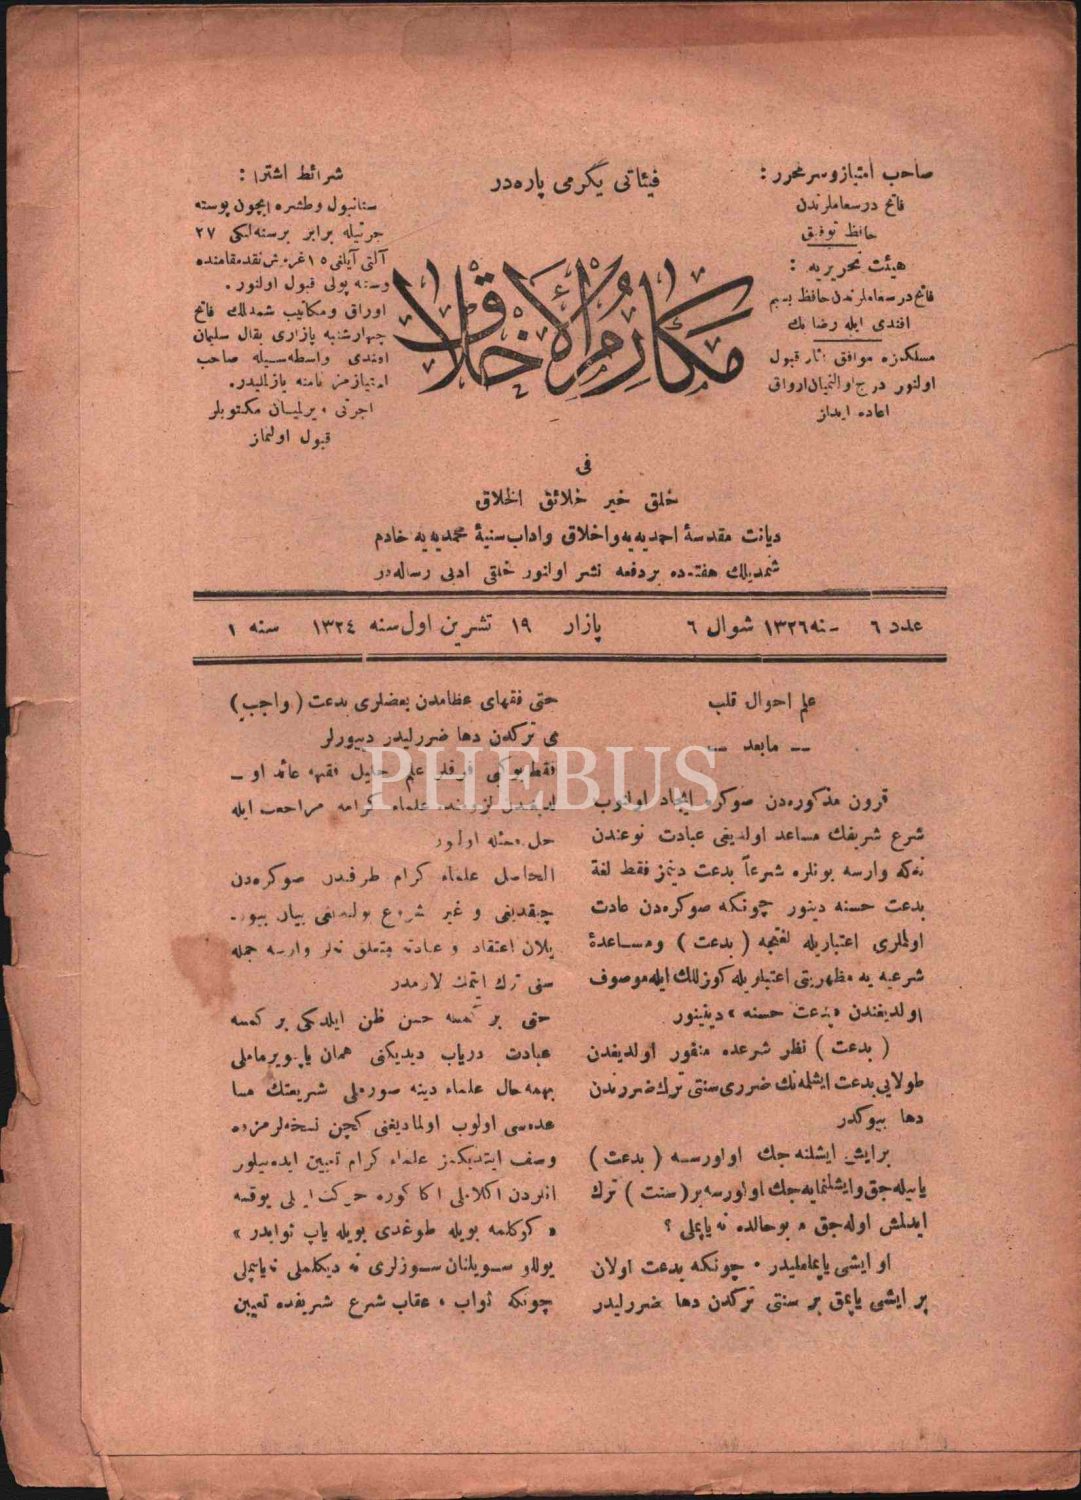 صاحب امتياز و سر محرر :
فاتح درسعاملرندن
حافظ توفيق
هيئت تحريريه :
فاتح درسعاملرندن حافظ بسيم
افندى ايله رضا بك
مسلكمزه موافق آثار قبول
اولنور درج اولنميان اوراق
اعاده ايدلمز
فيئاتى يگرمى پاره‌در
شرائط اشترا :
ستانبول و طشره ايچون پوسته
اجرتيله برابر برسنه‌لكى ٢٧
آلتى آيلغى ١٥ غروش نقد مقامنده
پوسته پولى قبول اولنور .
اوراق و مكاتيب شمديلك فاتح
چهارشنبه پازارى بقال سليمان
افندى واسطه‌سيله صاحب
امتيازمز نامنه يازلمليدر .
اجرتى ويرلميان مكتوبلر
قبول اولنماز
مكارم الأخلاق
فى
خلق خير خلائق الخلاق
ديانت مقدسهٔ احمديه‌يه و اخلاق و اداب سنيهٔ محمديه‌يه خادم
شمديلك هفته‌ده بر دفعه نشر اولنور خلقى ادبى رساله‌در
عدد ٦ سنه ١٣٢٦ شوال ٦ پازار ١٩ تشرين اول سنه ١٣٢٤ سنه ١
علم احوال قلب
— مابعد —
قرون مذكوره‌دن صوكره ايجاد اولنوب
شرع شريفك مساعد اولديغى عبادت نوعندن
نه‌كه وارسه بونلره شرعاً بدعت دينمز فقط لغة
بدعت حسنه دينور چونكه صوكره‌دن عادت
اولملرى اعتباريله لغتجه ( بدعت ) و مساعدهٔ
شرعيه يه مظهريتى اعتباريله كوزللك ايله موصوف
اولديغندن « بدعت حسنه » دينينور
( بدعت ) نظر شرعده منفور اولديغندن
طولايى بدعت ايشله‌نك ضررى سنتى ترك ضررندن
دها بيوكدر
بر ايش ايشلنه جك اولورسه ( بدعت )
ياپيله جق و ايشلنمايه جك اولورسه بر ( سنت ) ترك
ايدلمش اوله جق . بو حالده نه ياپملى ؟
او ايشى ياپمامليدر . چونكه بدعت اولان
بر ايشى ياپمق بر سنتى تركدن دها ضررليدر
حتى فقهاى عظامدن بعضلرى بدعت ( واجب )
ى تركدن دها ضررليدر ديبورلر
فقط بو كبى فرقلر علم جليل فقهه عائد او ـ
لديغندن لزومنده علماء كرامه مراجعت ايله
حل مسئله اولنور
الحاصل علماء كرام طرفندن صوكره‌دن
چيقديغى و غير مشروع بولنديغى بيان بيور ـ
يلان اعتقاد و عادته متعلق نه‌لر وارسه جمله
سنى ترك ايتمك لازمدر
حتى بر كمسه حسن ظن ايلدكى بر كمسه
عبادت درياب ديديكنى همان ياپويرماملى
بهمه حال علماء دينه صورملى شريعتك مسا
عده‌سى اولوب اولماديغنى كچن نسخه‌لرمزده
وصف ايتديكمز علماء كرام تعيين ايده بيلور
انلردن اكلاملى اكا كوره حركت ايتملى يوقسه
« كوكلمه بويله طوغدى بويله ياپ ثوابدر »
يوللو سويلنان سوزلرى نه ديكلملى نه ياپملى
چونكه ثواب ، عقاب شرع شريفده تعيين
PHEBUS